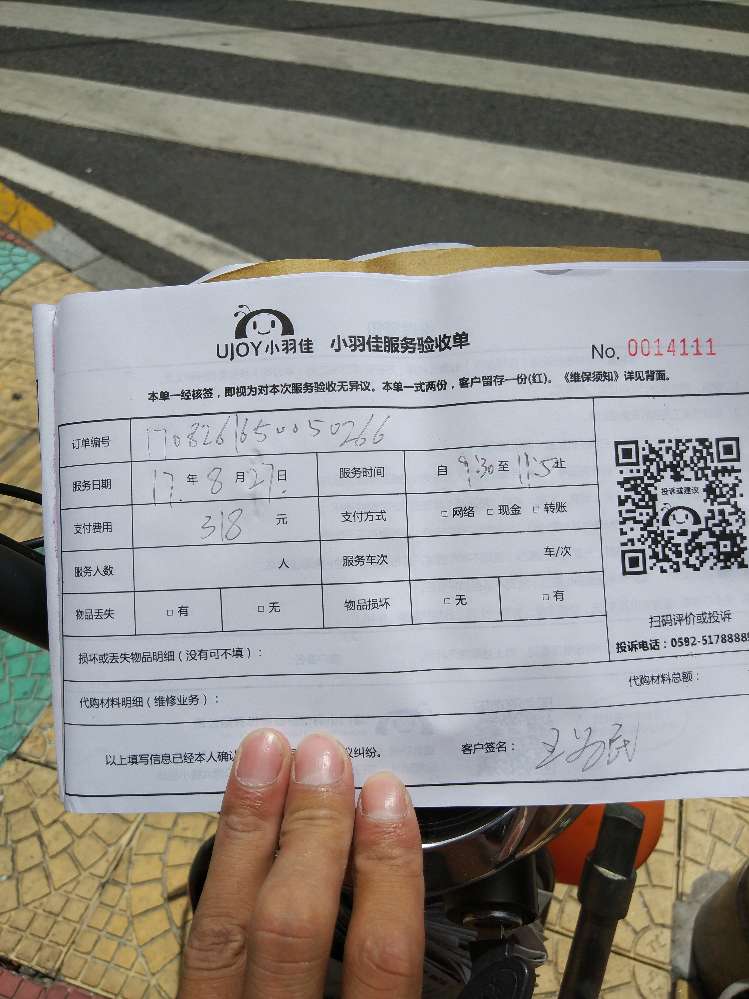 UJOY小羽佳 小羽佳服务验收单
No. 0014111
本单一经核签，即视为对本次服务验收无异议。本单一式两份，客户留存一份(红)。《维保须知》详见背面。
订单编号 1708261650050266
服务日期 17 年 8 月 27 日 服务时间 自 9:30 至 11:5 止
支付费用 318 元 支付方式 □ 网络 □ 现金 □ 转账
服务人数 人 服务车次 车/次
物品丢失 □ 有 □ 无 物品损坏 □ 无 □ 有
投诉或建议
扫码评价或投诉
投诉电话：0592-5178885
损坏或丢失物品明细（没有可不填）：
代购材料明细（维修业务）： 代购材料总额：
以上填写信息已经本人确 议纠纷。 客户签名： 王